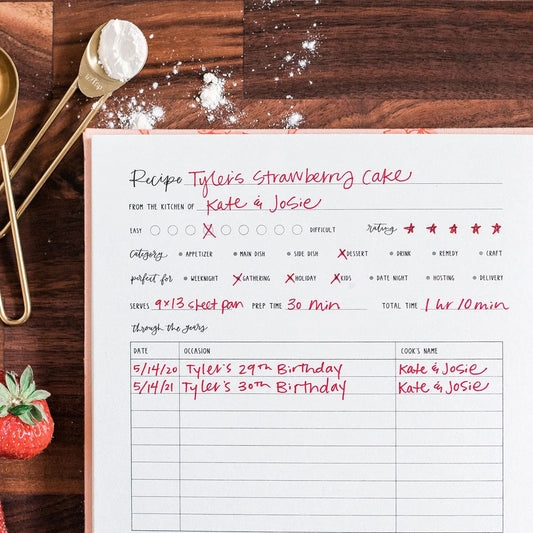 Recipe Tyler's Strawberry Cake
FROM THE KITCHEN OF Kate & Josie
EASY DIFFICULT rating
Category APPETIZER MAIN DISH SIDE DISH DESSERT DRINK REMEDY CRAFT
perfect for WEEKNIGHT GATHERING HOLIDAY KIDS DATE NIGHT HOSTING DELIVERY
SERVES 9x13 sheet pan PREP TIME 30 min TOTAL TIME 1 hr 10 min
through the years
DATE OCCASION COOK'S NAME
5/14/20 Tyler's 29th Birthday Kate & Josie
5/14/21 Tyler's 30th Birthday Kate & Josie